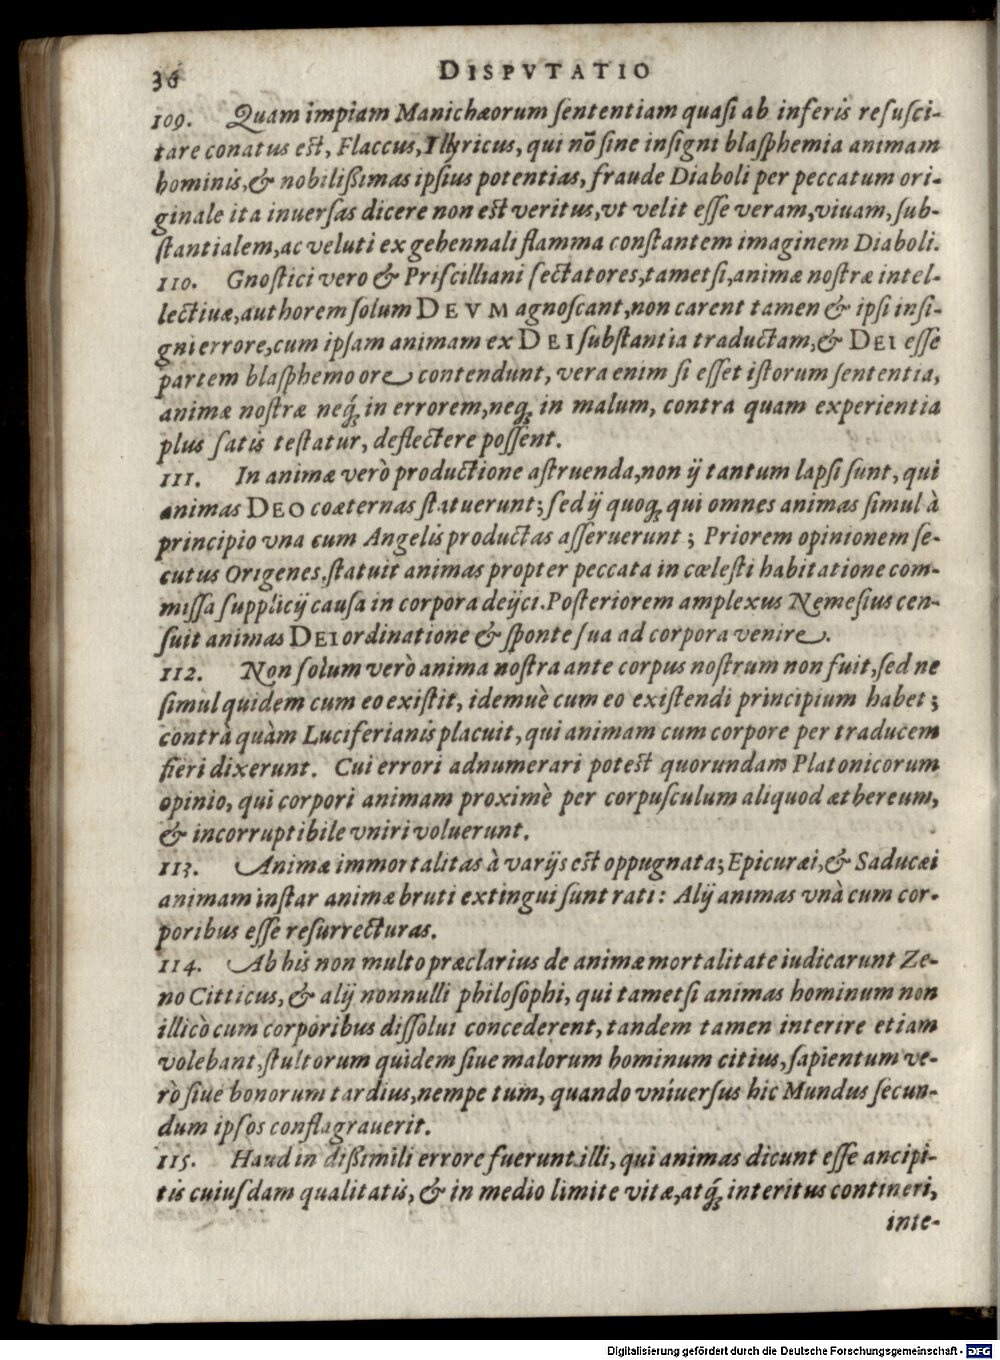 36 DISPVTATIO
109. Quam impiam Manichæorum ſententiam quaſi ab inferis reſuſci-
tare conatus eſt, Flaccus, Illyricus, qui nõ ſine inſigni blaſphemia animam
hominis, & nobilißimas ipſius potentias, fraude Diaboli per peccatum ori-
ginale ita inuerſas dicere non eſt veritus, vt velit eſſe veram, viuam, ſub-
ſtantialem, ac veluti ex gehennali flamma conſtantem imaginem Diaboli.
110. Gnoſtici vero & Priſcilliani ſectatores, tametſi, animæ noſtræ intel-
lectiuæ, authorem ſolum DEVM agnoſcant, non carent tamen & ipſi inſi-
gni errore, cum ipſam animam ex DEI ſubſtantia traductam, & DEI eſſe
partem blaſphemo ore contendunt, vera enim ſi eſſet iſtorum ſententia,
animæ noſtræ neq́ꝫ in errorem, neqꝫ in malum, contra quam experientia
plus ſatis teſtatur, deflectere poſſent.
111. In animæ verò productione aſtruenda, non ij tantum lapſi ſunt, qui
animas DEO coæternas ſtatuerunt; ſed ij quoqꝫ qui omnes animas ſimul à
principio vna cum Angelis productas aſſeruerunt; Priorem opinionem ſe-
cutus Origenes, ſtatuit animas propter peccata in cœleſti habitatione com-
miſſa ſupplicij cauſa in corpora deijci. Poſteriorem amplexus Nemeſius cen-
ſuit animas DEI ordinatione & ſponte ſua ad corpora venire.
112. Non ſolùm verò anima noſtra ante corpus noſtrum non fuit, ſed ne
ſimul quidem cum eo exiſtit, idemuè cum eo exiſtendi principium habet;
contrà quàm Luciferianis placuit, qui animam cum corpore per traducem
fieri dixerunt. Cui errori adnumerari poteſt quorundam Platonicorum
opinio, qui corpori animam proximè per corpuſculum aliquod æthereum,
& incorruptibile vniri voluerunt.
113. Animæ immortalitas à varijs eſt oppugnata; Epicuræi, & Saducæi
animam inſtar animæ bruti extingui ſunt rati: Alij animas vnà cum cor-
poribus eſſe reſurrecturas.
114. Ab his non multo præclarius de animæ mortalitate iudicarunt Ze-
no Citticus, & alij nonnulli philoſophi, qui tametſi animas hominum non
illicò cum corporibus diſſolui concederent, tandem tamen interire etiam
volebant, ſtultorum quidem ſiue malorum hominum citius, ſapientum ve-
rò ſiue bonorum tardius, nempe tum, quando vniuerſus hic Mundus ſecun-
dum ipſos conflagrauerit.
115. Haud in dißimili errore fuerunt illi, qui animas dicunt eſſe ancipi-
tis cuiuſdam qualitatis, & in medio limite vitæ, atq́ꝫ interitus contineri,
inte-
Digitalisierung gefördert durch die Deutsche Forschungsgemeinschaft - DFG